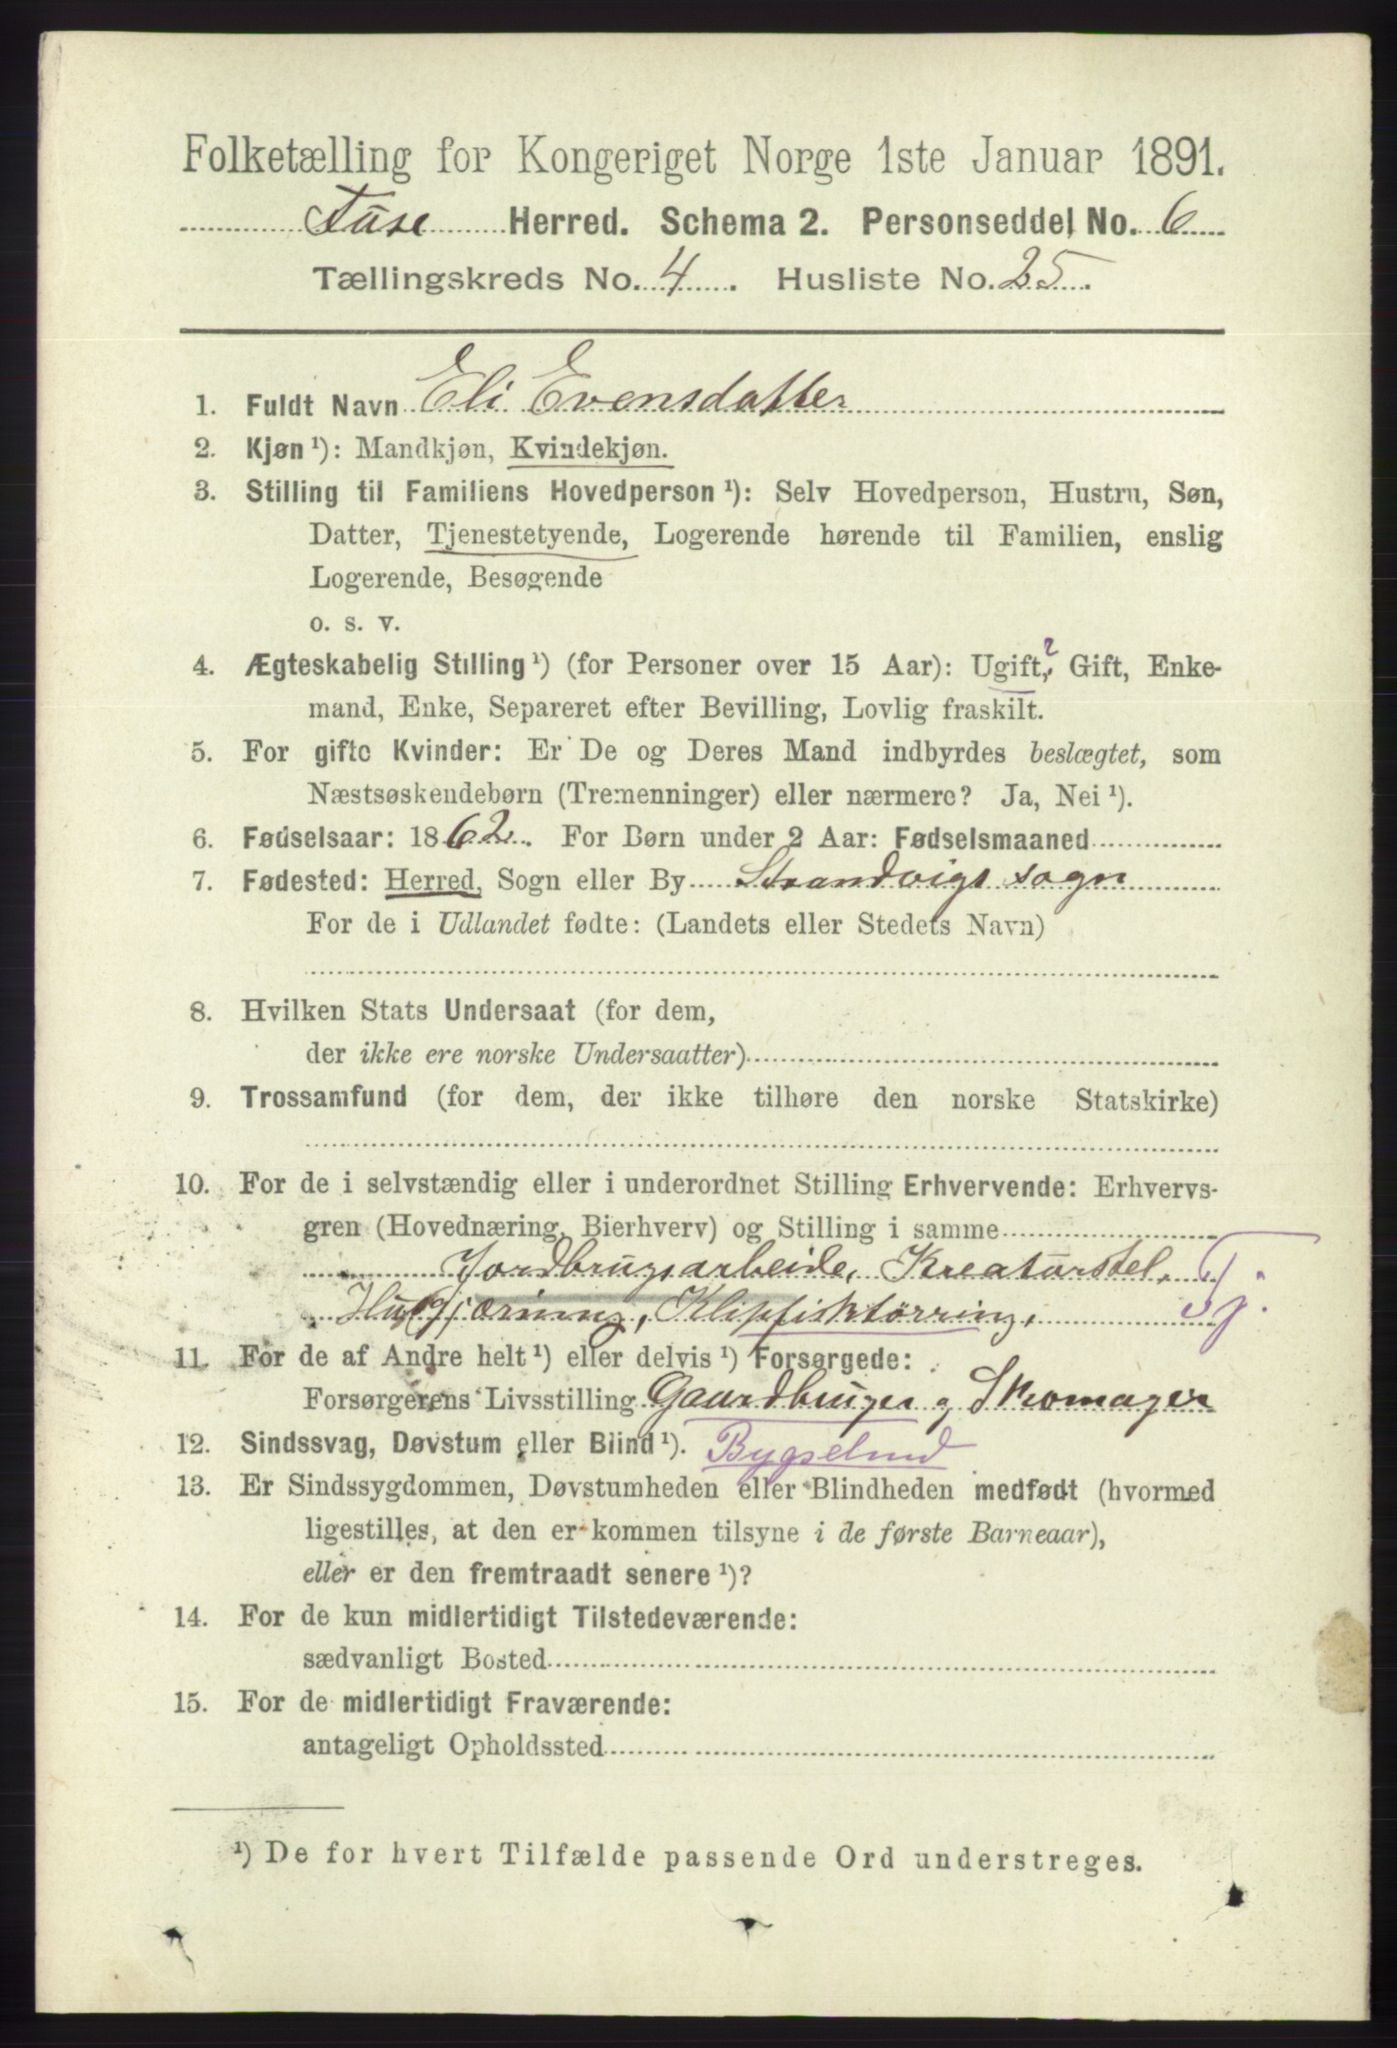 Folketælling for Kongeriget Norge 1ste Januar 1891.
Fuse Herred. Schema 2. Personseddel No. 6
Tællingskreds No. 4. Husliste No. 25.
1. Fuldt Navn Eli Evensdatter
2. Kjøn ¹): Mandkjøn, Kvindekjøn.
3. Stilling til Familiens Hovedperson ¹): Selv Hovedperson, Hustru, Søn,
Datter, Tjenestetyende, Logerende hørende til Familien, enslig
Logerende, Besøgende
o. s. v.
4. Ægteskabelig Stilling ¹) (for Personer over 15 Aar): Ugift,? Gift, Enke-
mand, Enke, Separeret efter Bevilling, Lovlig fraskilt.
5. For gifte Kvinder: Er De og Deres Mand indbyrdes beslægtet, som
Næstsøskendebørn (Tremenninger) eller nærmere? Ja, Nei ¹).
6. Fødselsaar: 1862. For Børn under 2 Aar: Fødselsmaaned
7. Fødested: Herred, Sogn eller By Strandvigs sogn
For de i Udlandet fødte: (Landets eller Stedets Navn)
8. Hvilken Stats Undersaat (for dem,
der ikke ere norske Undersaatter)
9. Trossamfund (for dem, der ikke tilhøre den norske Statskirke)
10. For de i selvstændig eller i underordnet Stilling Erhvervende: Erhvervs-
gren (Hovednæring, Bierhverv) og Stilling i samme
Jordbrugsarbeide, Kreaturstel, Tj.
Husgjærning, Klipfisktørring,
11. For de af Andre helt ¹) eller delvis ¹) Forsørgede:
Forsørgerens Livsstilling Gaardbruger og Skomager
12. Sindssvag, Døvstum eller Blind ¹).
13. Er Sindssygdommen, Døvstumheden eller Blindheden medfødt (hvormed
ligestilles, at den er kommen tilsyne i de første Barneaar),
eller er den fremtraadt senere ¹)?
14. For de kun midlertidigt Tilstedeværende:
sædvanligt Bosted
15. For de midlertidigt Fraværende:
antageligt Opholdssted
¹) De for hvert Tilfælde passende Ord understreges.